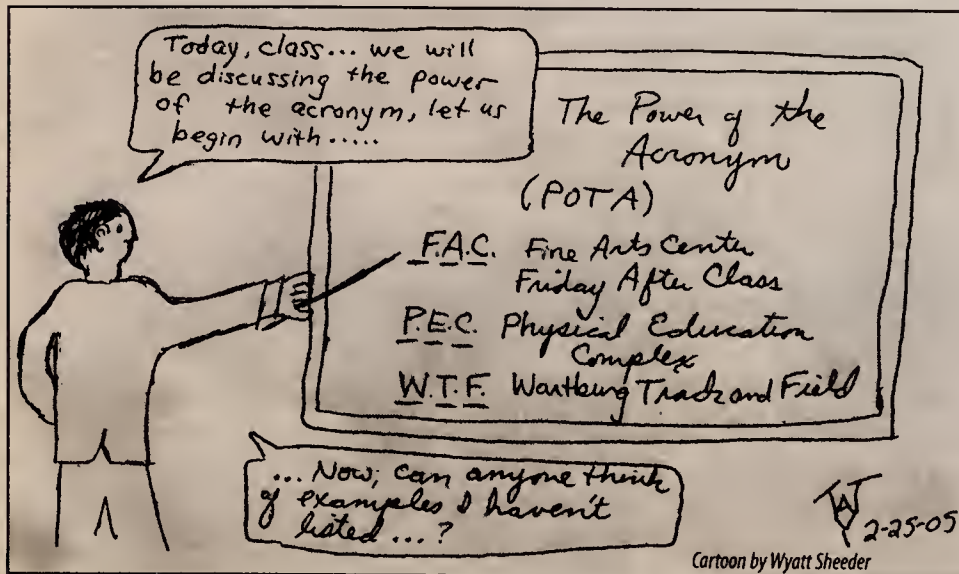 Today, class... we will
be discussing the power
of the acronym, let us
begin with.....
The Power of the
Acronym
(POTA)
F.A.C. Fine Arts Center
Friday After Class
P.E.C. Physical Education
Complex
W.T.F. Wartburg Track and Field
... Now, can anyone think
of examples I haven't
listed...?
2-25-05
Cartoon by Wyatt Sheeder